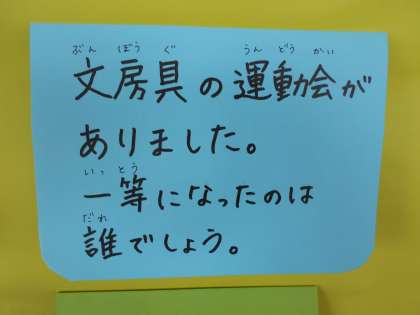 ぶんぼうぐ うんどうかい
文房具の運動会が
ありました。
いっとう
一等になったのは
だれ
誰でしょう。